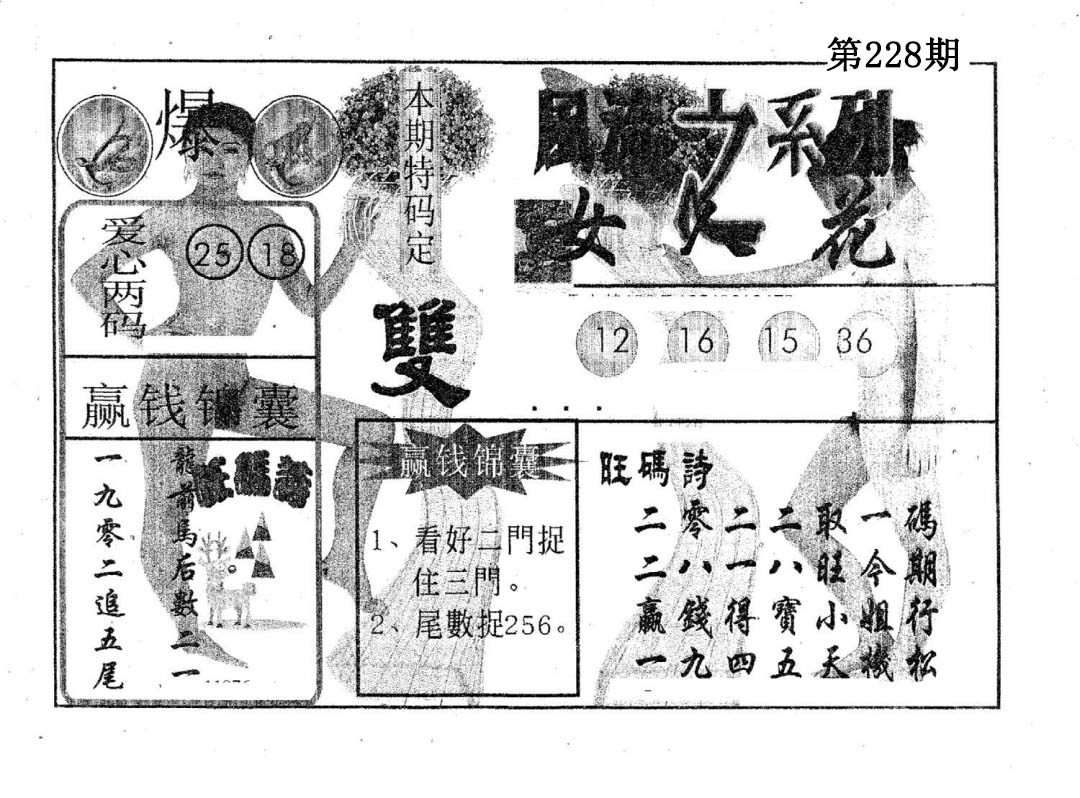 第228期
爆
爱心两码
25 18
赢钱锦囊
龍前馬后數二一
一九零二追五尾
本期特码定
雙
系列
女人花
12 16 15 36
赢钱锦囊
1、看好二門捉
住三門。
2、尾數捉256。
旺碼詩
二零二二取一碼
二八一八旺今期
贏錢得寶小姐行
一九四五天機松